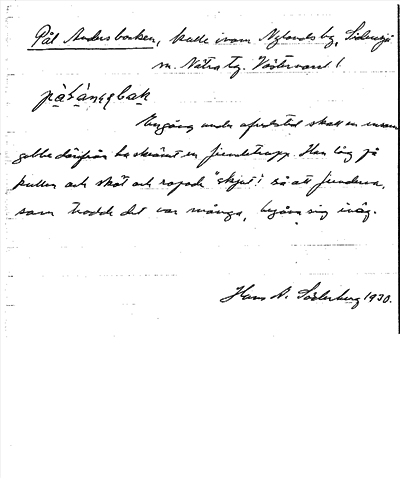 Pål Andersbacken, kulle inom Nylands by, Sidensjö
sn. Nätra tg. Västernorrl.
En gång under ofredstid skall en ensam
gubbe därifrån ha skrämt en fiendetrupp. Han låg på
kullen och sköt och ropade "skjut"! så att fienderna,
som trodde det var många, begåvo sig iväg.
Hans N. Söderberg 1930.